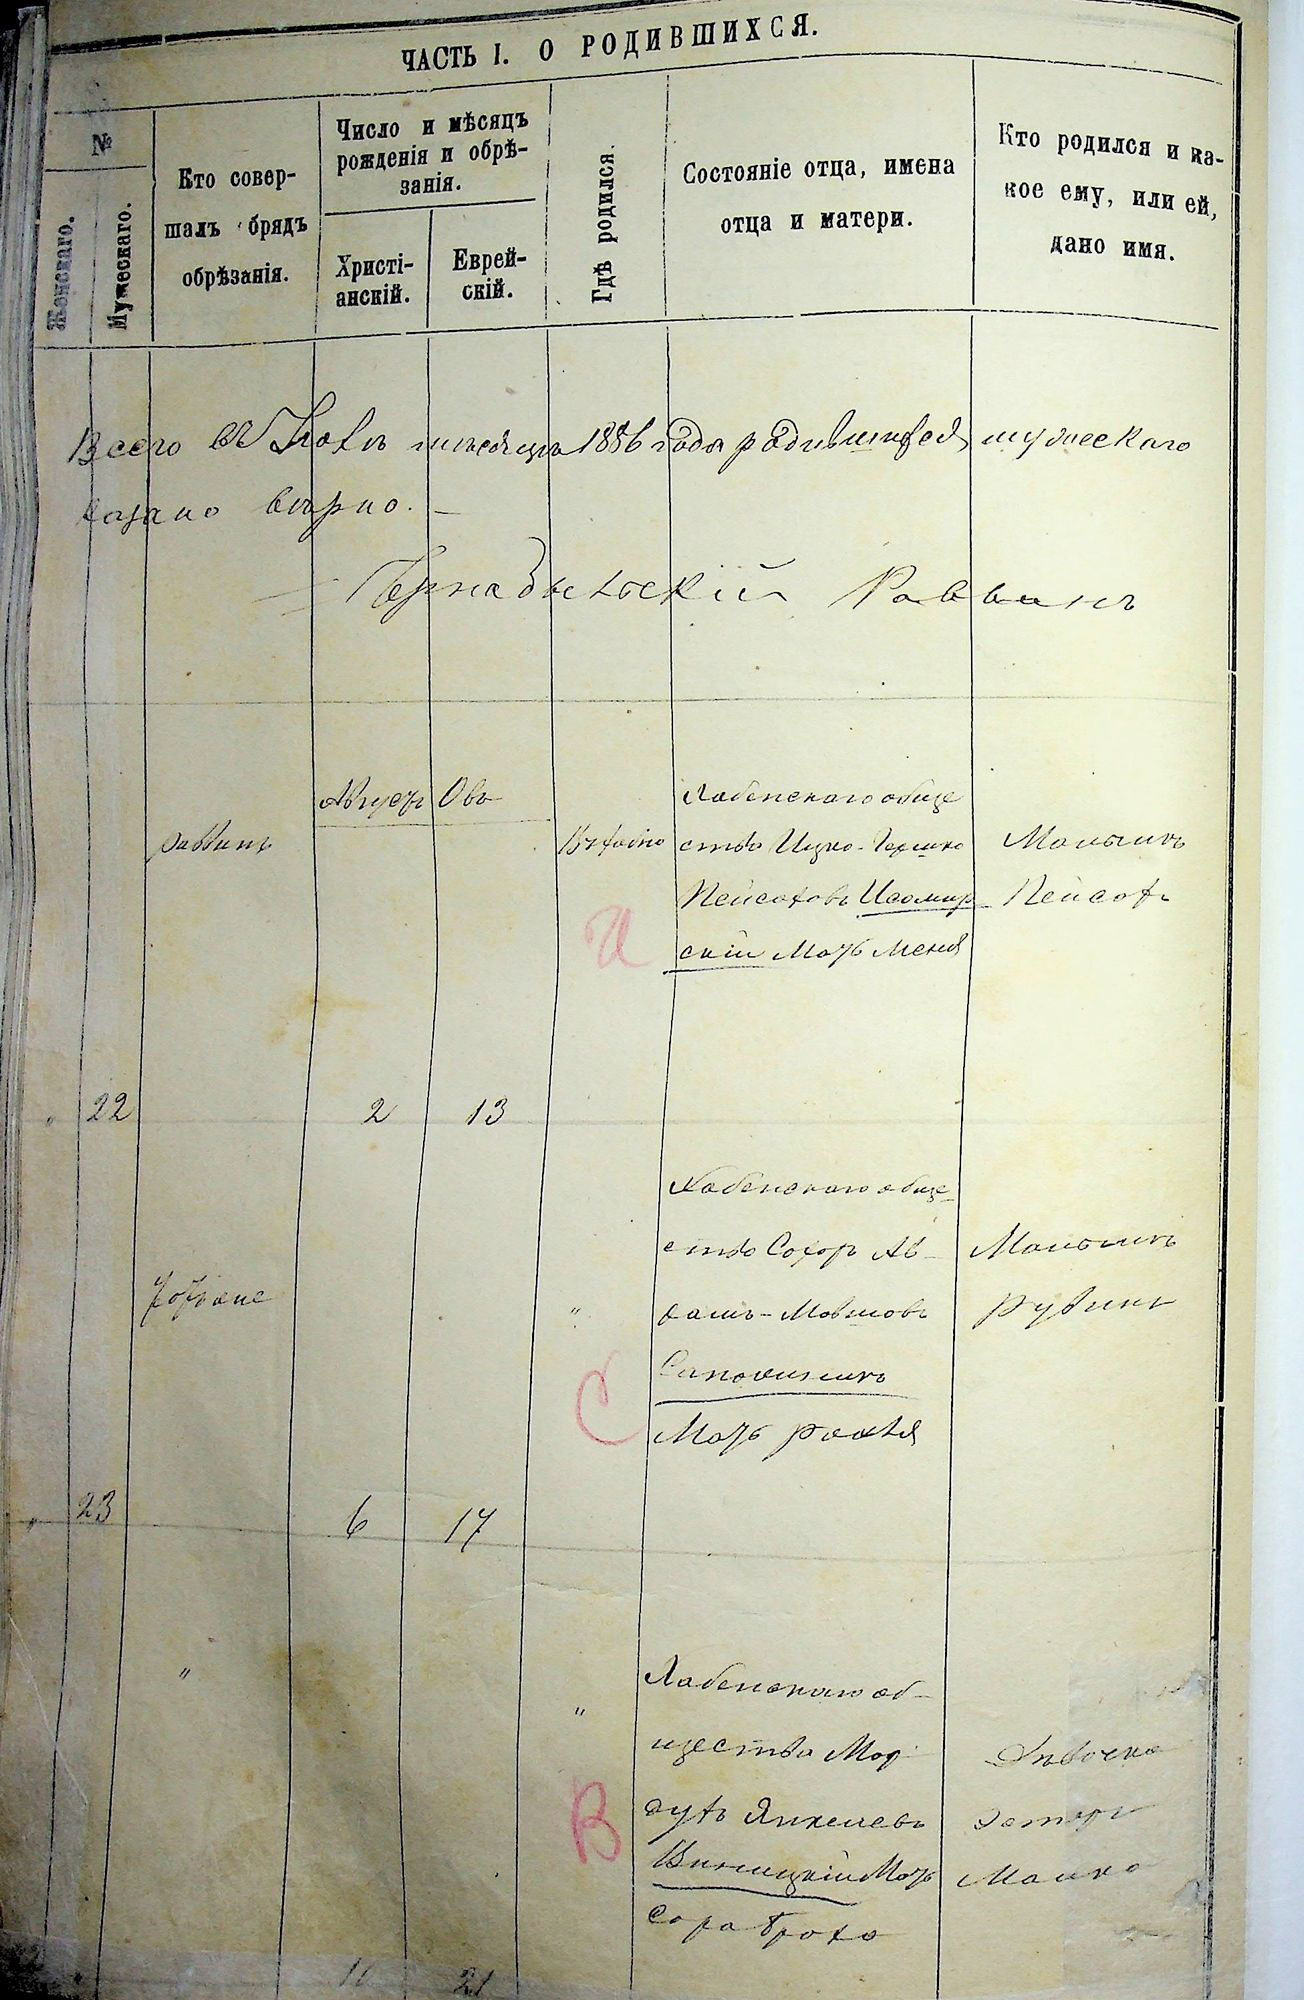 ЧАСТЬ I. О РОДИВШИХСЯ.
№
Женскаго.
Мужескаго.
Кто совер-
шалъ обрядъ
обрѣзанія.
Число и мѣсяцъ
рожденія и обрѣ-
занія.
Христі-
анскій.
Еврей-
скій.
Гдѣ родился.
Состояніе отца, имена
отца и матери.
Кто родился и ка-
кое ему, или ей,
дано имя.
Всего въ мѣсяцѣ 1886 года родившихся мужескаго
вѣрно. —
Чернобыльскій Раввинъ
Августъ Овъ
раввинъ
Хабенскаго обще
ства Ицко-Гершко
Пейсаховъ Исомир
скій Мать Меня
Мальчикъ
Пейсахъ
И
22 2 13
Хабенскаго обще-
ство Сохоръ Ав-
рамъ-Мовшовъ
Сапожникъ
Мать рахля
Мальчикъ
рувинъ
"
С
23 6 17
"
"
Хабенскаго об-
щества Мор
духъ Янкелевъ
Винницкій Мать
Сора Броха
Дѣвочка
Эстеръ
Малка
В
21